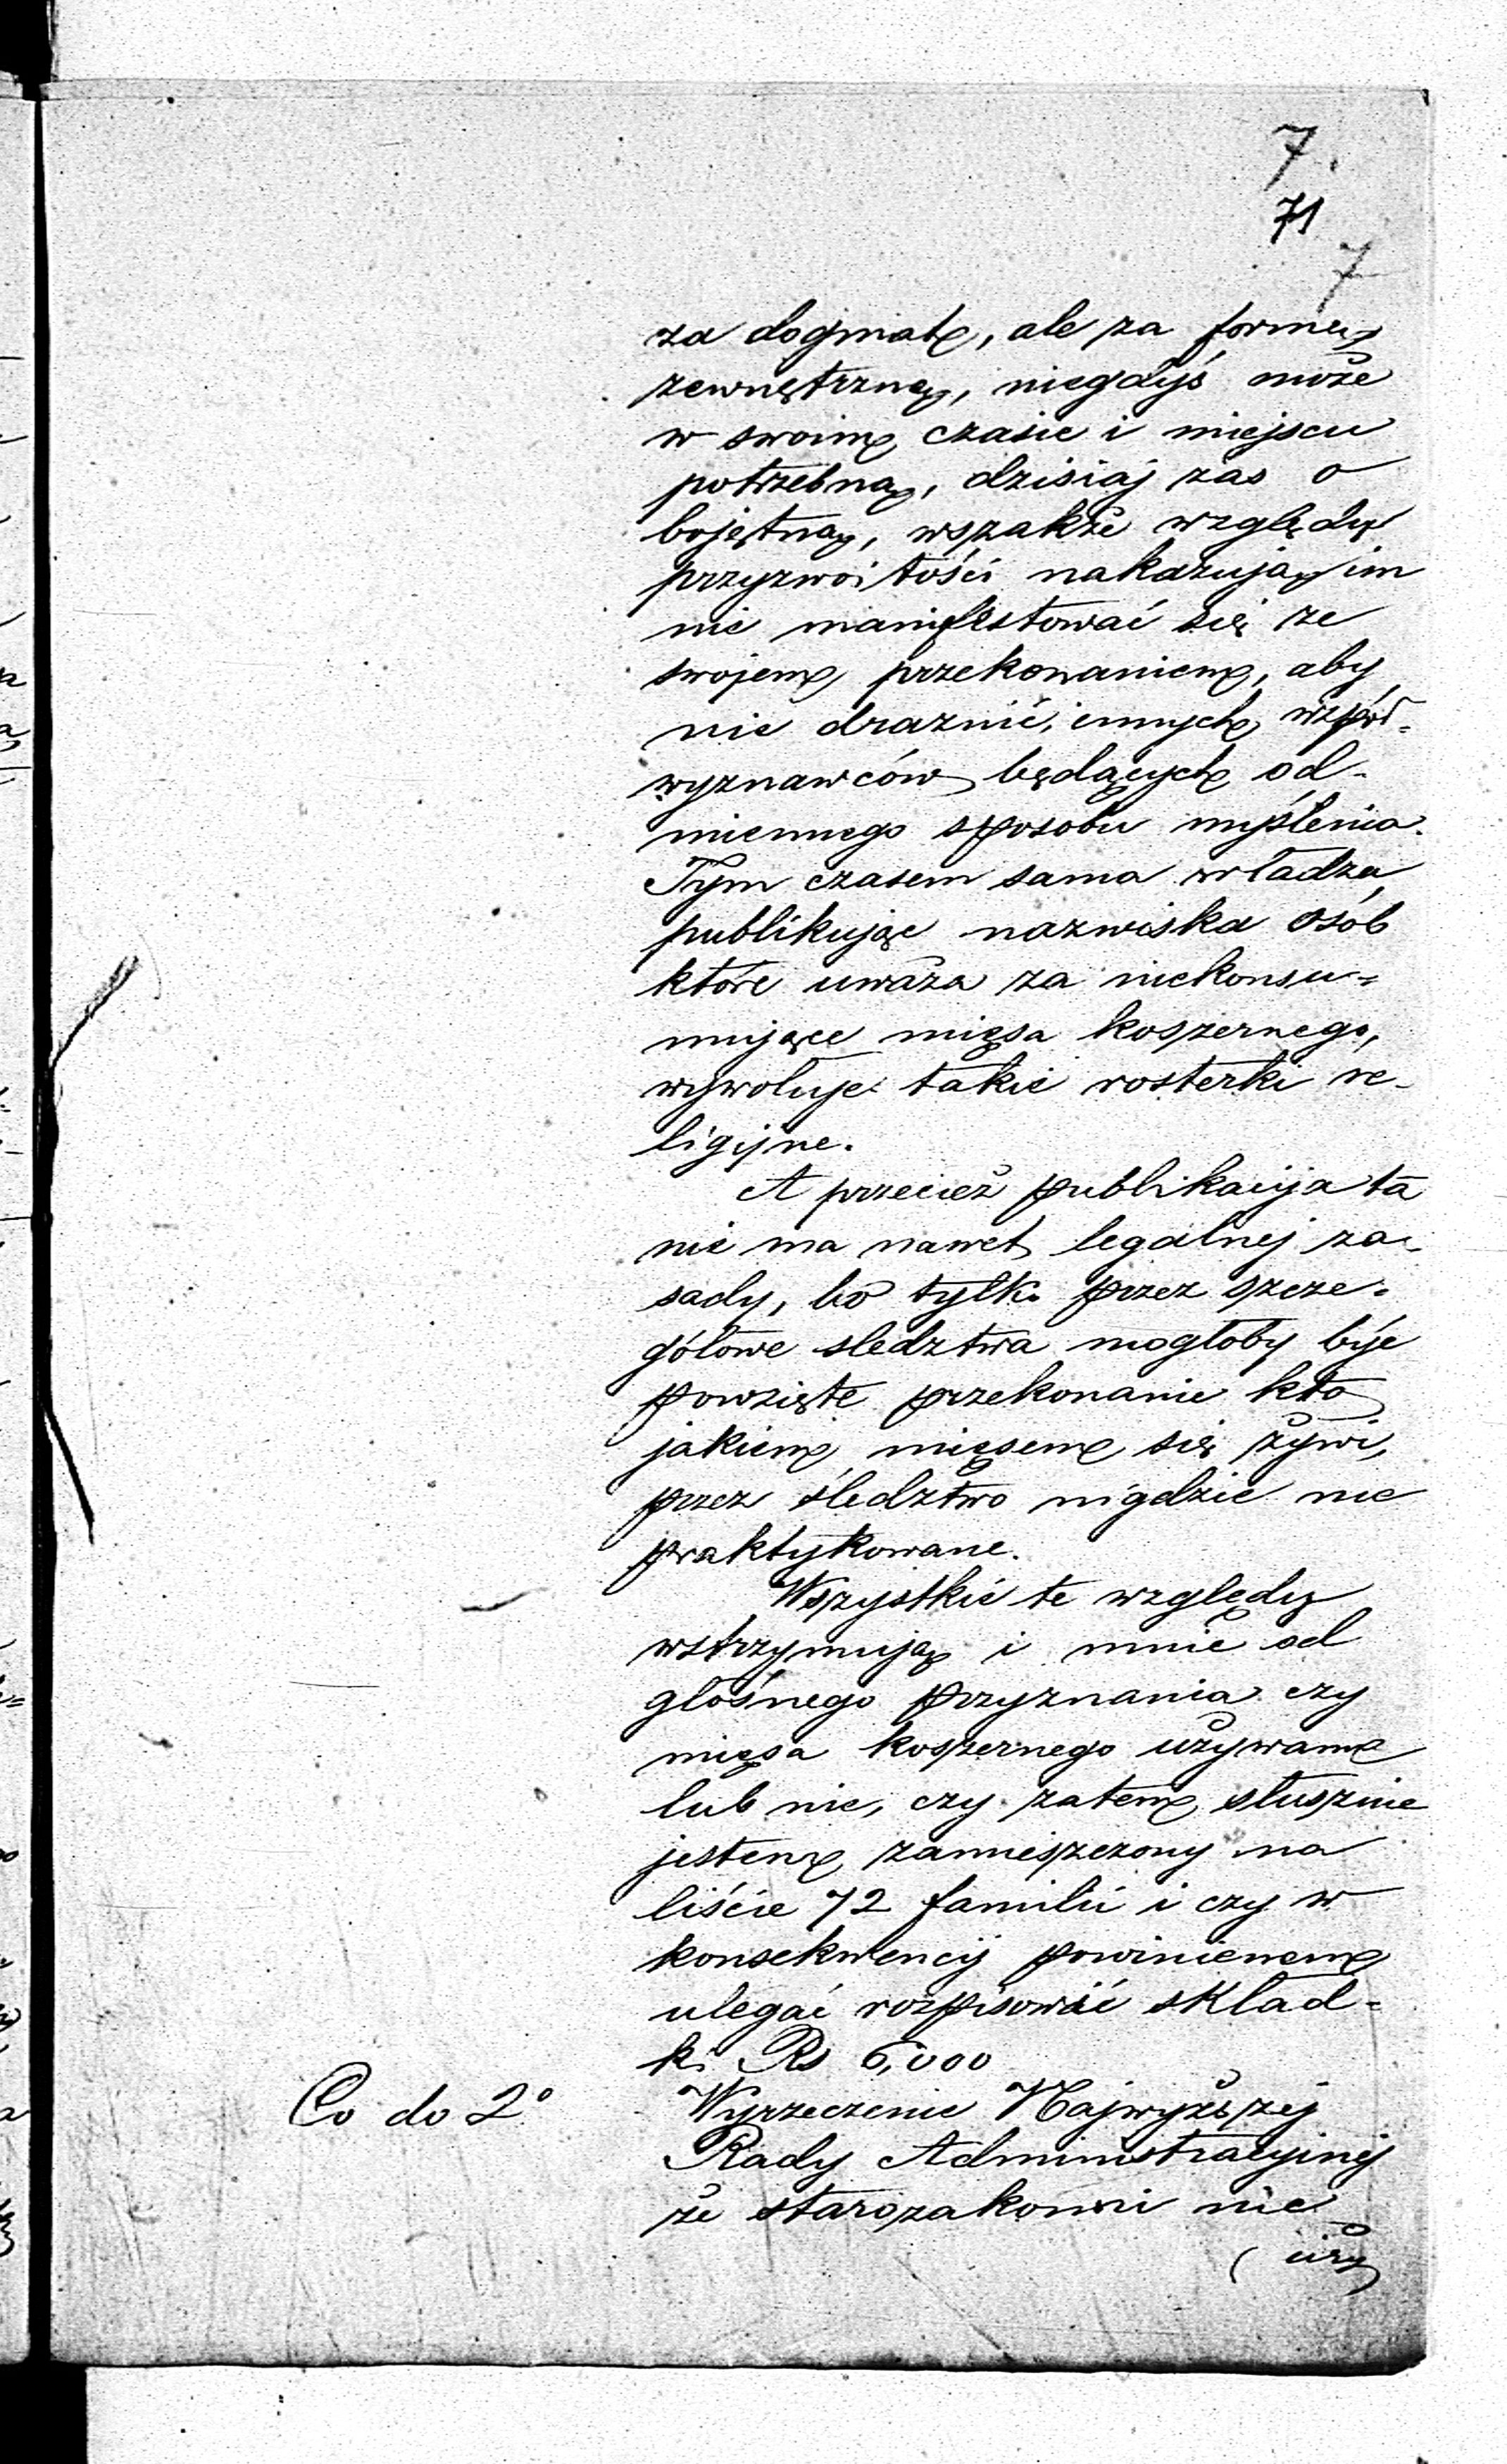 7.
71
7
za dogmat, ale za formę
zewnętrzną, niegdyś może
w swoim czasie i miejscu
potrzebną, dzisiaj zas o
bojętną, wszakże względy
przyzwoitości nakazują im
nie manifestować się ze
swojem przekonaniem, aby
nie draznić innych wspól-
wyznawców będących od-
miennego sposobu myślenia.
Tym czasem sama władza
publikując nazwiska osób
które uważa za niekonsu=
mujące mięsa koszernego,
wywołuje takie rosterki re-
ligijne.
A przecież publikacija ta
nie ma nawet legalnej za-
sady, bo tylko przez szcze-
gółowe sledztwa mogłoby być
powzięte przekonanie kto
jakiem mięsem się żywi,
przez śledztwo nigdzie nie
praktykowane.
Wszystkie te względy
wstrzymują i mnie od
głośnego przyznania czy
mięsa koszernego używam
lub nie, czy zatem słusznie
jestem zamieszczony na
liście 72 familii i czy w
konsekwencij powinienem
ulegać rozpisowéi skład=
ki Rs 6,000
Co do 2°
Wyrzeczenie Najwyższej
Rady Administracyjnej
że starozakonni nie
uży